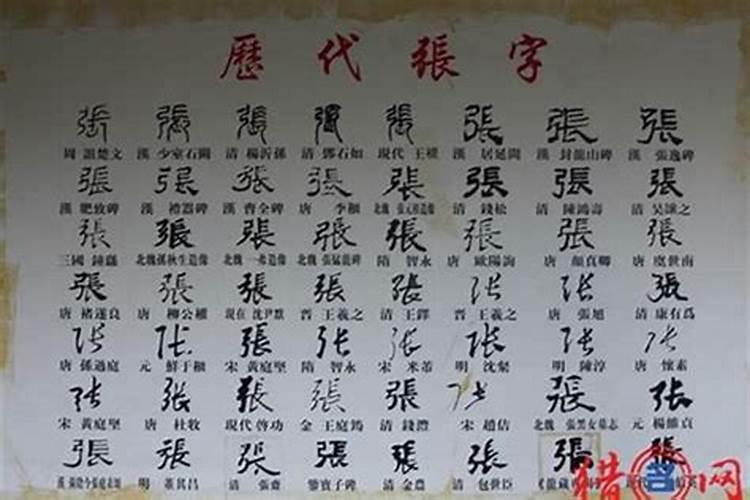 歷代張字
張 張 張 張 張 張 張 張
周 詛楚文 漢 少室石闕 清 楊沂孫 清 鄧石如 現代 王褆 漢 居延簡 漢 封龍山碑 漢 張遷碑
張 張 張 張 張 張 張 張
漢 肥致碑 漢 禮器碑 漢 曹全碑 唐 李邕 北魏 張元祖造像 清 錢松 清 陳鴻壽 清 吳讓之
張 張 張 張 張 張 張 張
三國 鍾繇 北魏 孫秋生造像 北魏 一弗造像 北魏 張猛龍碑 隋 智永 唐 歐陽詢 唐 顏真卿 唐 虞世南
張 張 張 張 張 張 張 張
唐 褚遂良 唐 柳公權 現在 沈尹默 晋 王羲之 清 王鐸 晋 王羲之 唐 張旭 清 康有爲
張 張 張 張 張 張 張 張
唐 孫過庭 元 鮮于樞 宋 黃庭堅 隋 智永 宋 米芾 明 沈粲 明 陳淳 唐 懷素
張 張 張 張 張 張 張 張
宋 黃庭堅 唐 杜牧 現代 啓功 金 王庭筠 清 錢灃 宋 趙佶 北魏 張黑女墓志 元 楊維貞
張 張 張 張 張 張 張 張
明 董其昌 清 張裔 爨寶子碑 清 金農 清 包世臣
猎 网